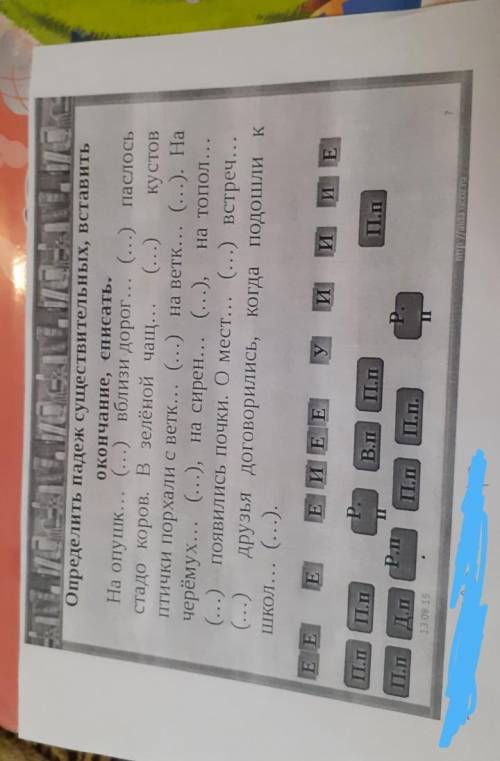 Определить падеж существительных, вставить
окончание, списать.
На опушк... (...) вблизи дорог... (...) паслось
стадо коров. В зелёной чащ... (...) кустов
птички порхали с ветк... (...) на ветк... (...). На
черёмух... (...), на сирен... (...), на топол...
(...) появились почки. О мест... (...) встреч...
(...) друзья договорились, когда подошли к
школ... (...).
Е Е Е Е И Е Е У И И И Е
П.п П.п Р.п В.п П.п П.п
П.п Д.п Р.п П.п П.п. Р.п
13.09.15
7